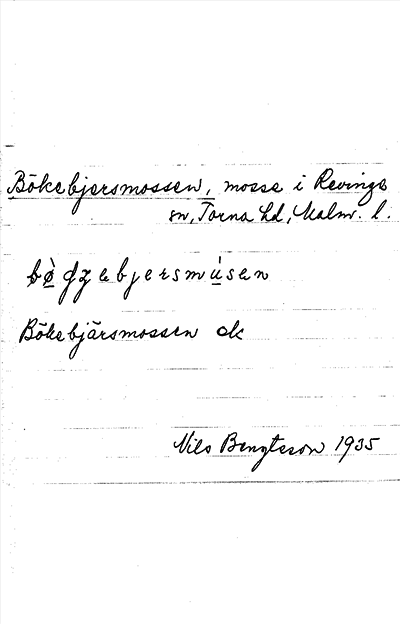 Bökebjersmossen, mosse i Revinge
sn, Torna hd, Malm. l.
bø̀gzebjersmu̇sen
Bökebjärsmossen ek
Nils Bengtsson 1935